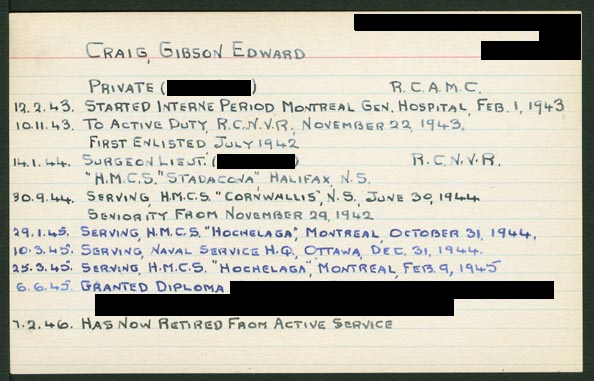 CRAIG, GIBSON EDWARD
PRIVATE ( ) R.C.A.M.C.
12.2.43. STARTED INTERNE PERIOD, MONTREAL GEN. HOSPITAL, FEB. 1, 1943
10.11.43. TO ACTIVE DUTY, R.C.N.V.R., NOVEMBER 22, 1943.
FIRST ENLISTED JULY 1942
14.1.44. SURGEON LIEUT. ( ) R.C.N.V.R.
"H.M.C.S." STADACONA", HALIFAX, N.S.
30.9.44. SERVING, H.M.C.S. "CORNWALLIS", N.S., JUNE 30, 1944
SENIORITY FROM NOVEMBER 29, 1942
29.1.45. SERVING, H.M.C.S. "HOCHELAGA", MONTREAL, OCTOBER 31, 1944.
10.3.45. SERVING, NAVAL SERVICE H.Q., OTTAWA, DEC. 31, 1944.
25.3.45. SERVING, H.M.C.S. "HOCHELAGA", MONTREAL, FEB. 9, 1945
6.6.45. GRANTED DIPLOMA
7.2.46. HAS NOW RETIRED FROM ACTIVE SERVICE